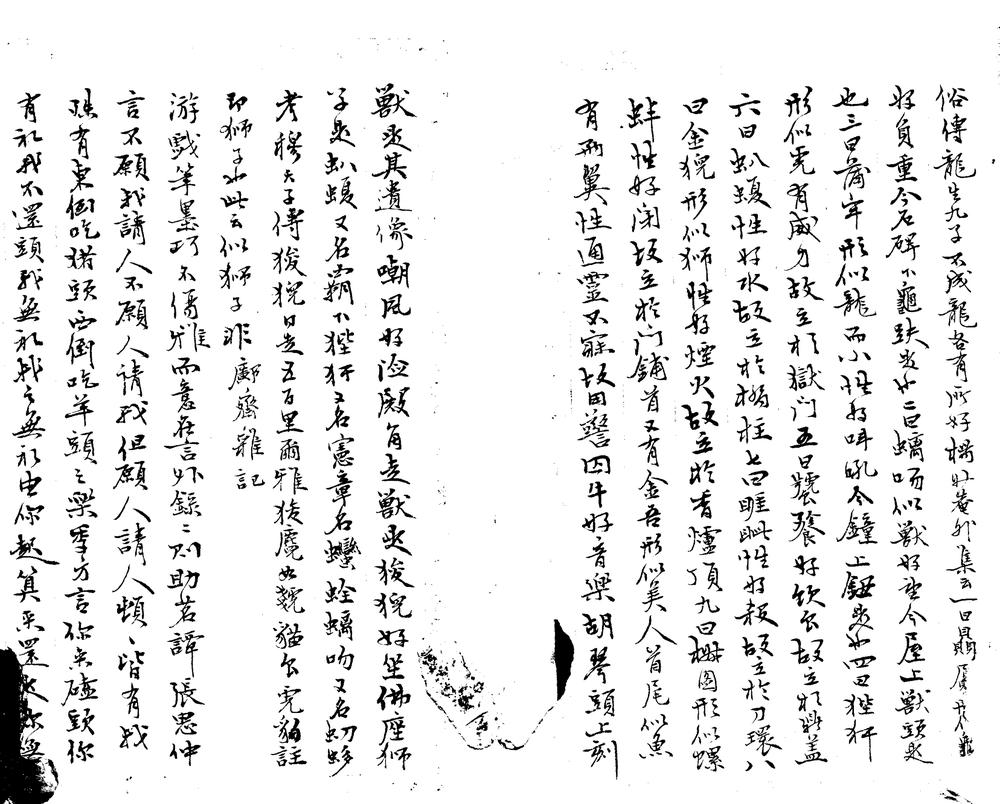 俗傳龍生九子不成龍各有所好楊升菴外集云一曰贔屓形似龜
好負重今石碑下龜趺是也二曰螭吻似獸好望今屋上獸頭是
也三曰蒲牢形似龍而小性好吽吼今鐘上鈕是也四曰狴犴
形似虎有威力故立於獄門五曰饕餮好飲食故立於鼎盖
六曰虭蝮性好水故立於橋柱七曰睚眦性好殺故立於刀環八
曰金猊形似獅性好煙火故立於香爐頂九曰椒圖形似螺
蚌性好闭故立於门鋪首又有金吾形似美人首尾似魚
有兩翼性通靈不寐故用警四牛好音樂胡琴頭上刻
獸是其遺像嘲風好險殿角走獸是狻猊好坐佛座獅
子是虭蝮又名霸下狴犴又名憲章名蠻蛭螭吻又名虭蛥
考穆天子傳狻猊日走五百里爾雅狻麑如虦貓食虎豹註
即獅子也此云似獅子非 鄘齋雜記
游戲筆墨巧不傷雅而意在言外錄之則助茗譚張思仲
言不願我請人不願人請我但願人請人頓頓皆有我
有東倒吃猪頭西倒吃羊頭之樂 方言你去碰頭你
有礼我不還頭我無礼我之無礼由你起算來還是你無